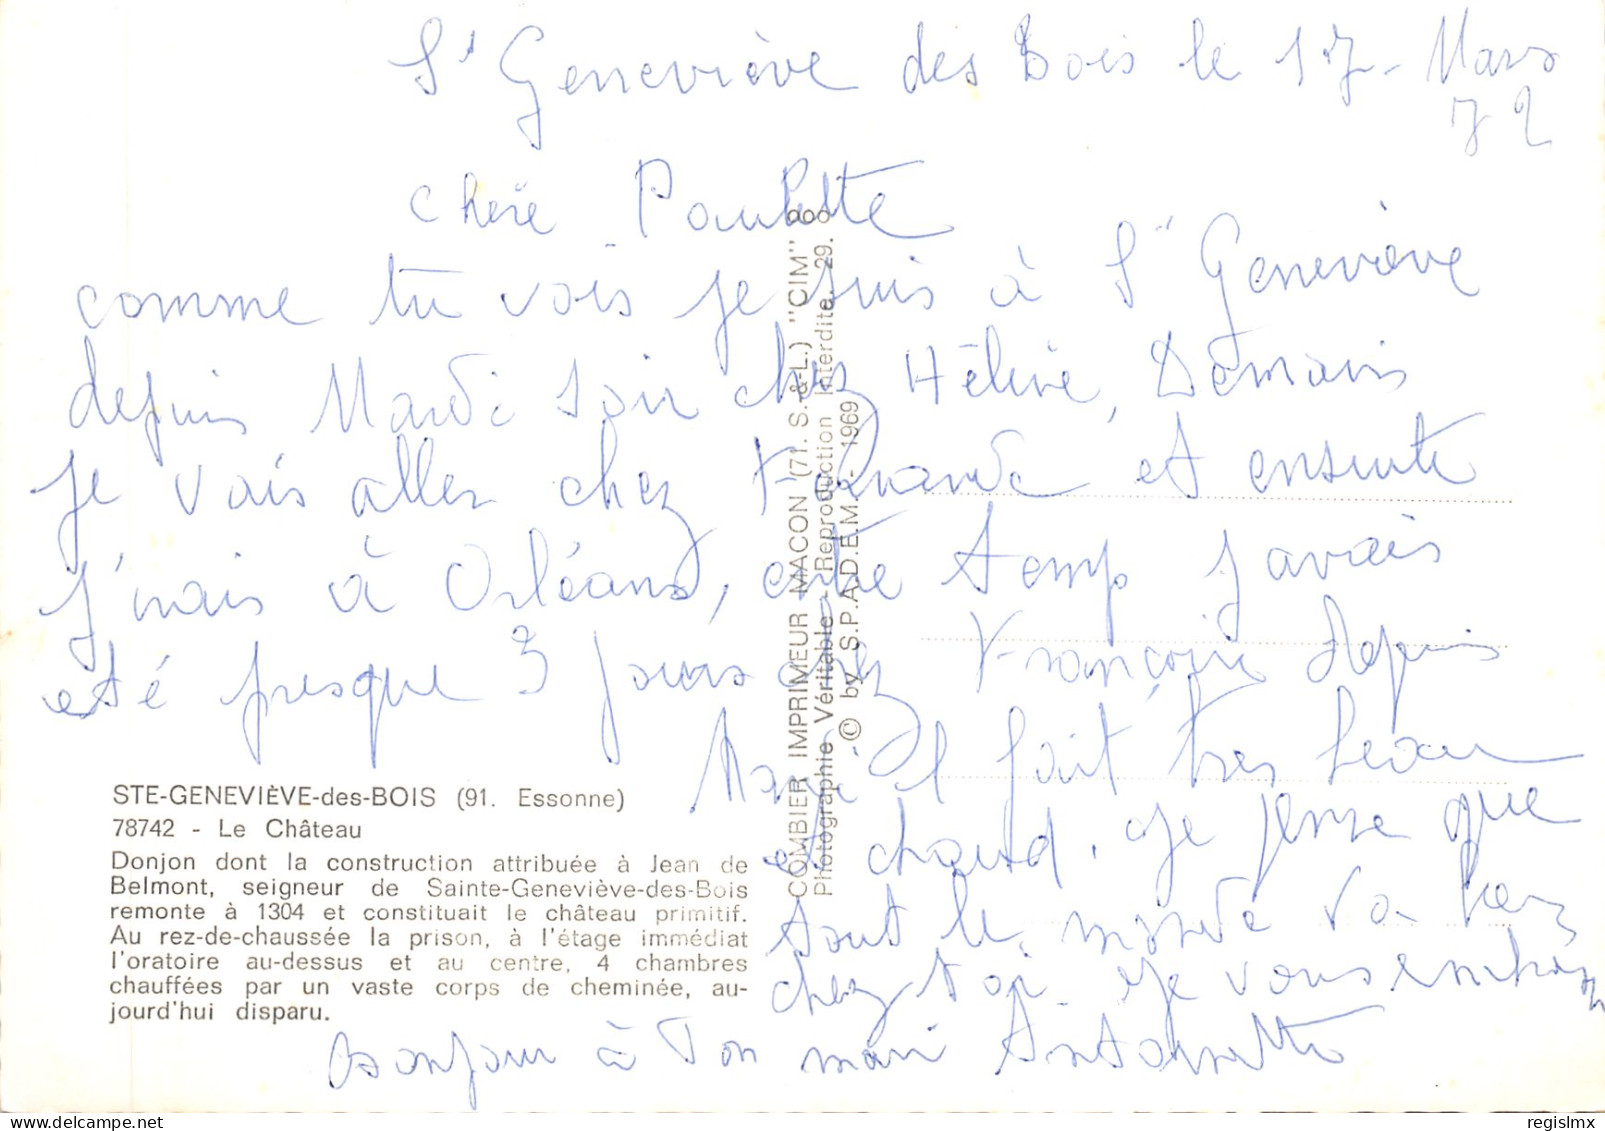 St Geneviève des Bois le 17 - Mars
72
Chère Paulette
comme tu vois je suis à St Geneviève
depuis Mardi soir chez Hélène, Demain
je vais aller chez Fernande et ensuite
j'irais à Orléans, entre temp j'avais
eté presque 3 jours chez Françoise depuis
Mardi il fait tres beau
et chaud. Je pense que
tout le monde va bien
chez toi. Je vous embrasse
bonjour à Ton mari Antoinette
STE-GENEVIÈVE-des-BOIS (91. Essonne)
78742 - Le Château
Donjon dont la construction attribuée à Jean de
Belmont, seigneur de Sainte-Geneviève-des-Bois
remonte à 1304 et constituait le château primitif.
Au rez-de-chaussée la prison, à l'étage immédiat
l'oratoire au-dessus et au centre, 4 chambres
chauffées par un vaste corps de cheminée, au-
jourd'hui disparu.
COMBIER IMPRIMEUR MACON (71. S.-&-L.) "CIM"
Photographie Véritable - Reproduction Interdite. 29.
© by S.P.A.D.E.M. - 1969
delcampe.net
regislmx